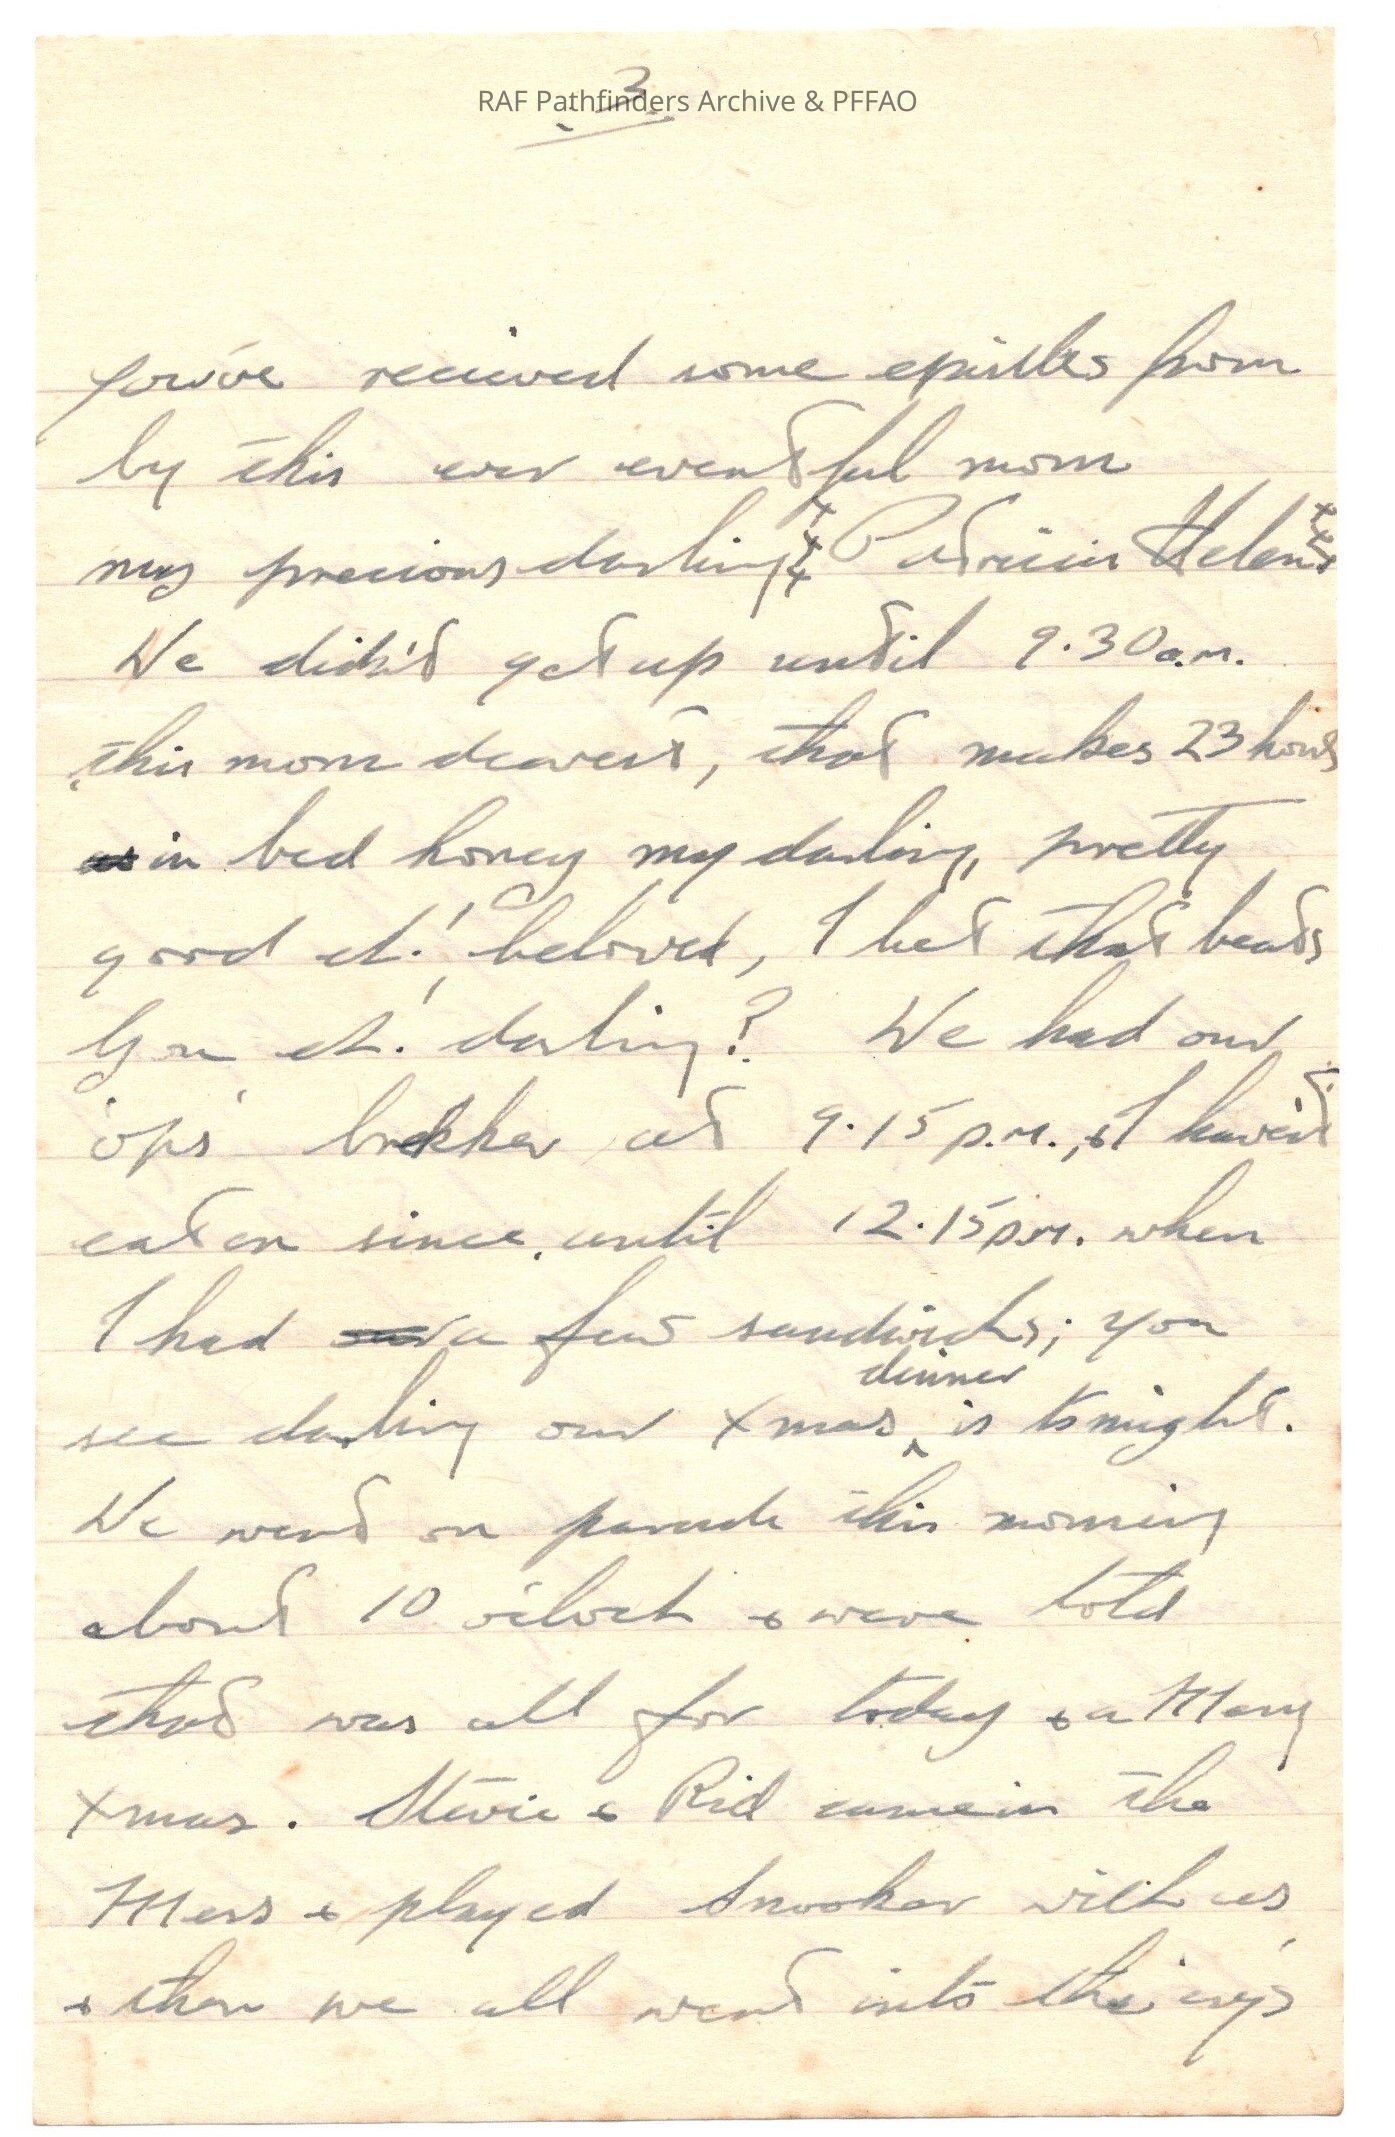 3.
RAF Pathfinders Archive & PFFAO
you've recieved some epistles from
by this ever eventful morn
my precious darling xxxx Patricia Helen xxxx
We didn't get up until 9.30 a.m.
this morn dearest, that makes 23 hours
in bed honey my darling, pretty
good eh.! beloved, I bet that beats
you eh. darling? We had our
'ops' brekker at 9.15 p.m., & I haven't
eaten since, until 12.15 p.m. when
I had a few sandwichs; you
see darling our Xmas dinner is tonight.
We went on parade this morning
about 10 o'clock & were told
that was all for today & a Merry
Xmas. Stevie & Rid came in the
Mess & played Snooker with us,
& then we all went into the